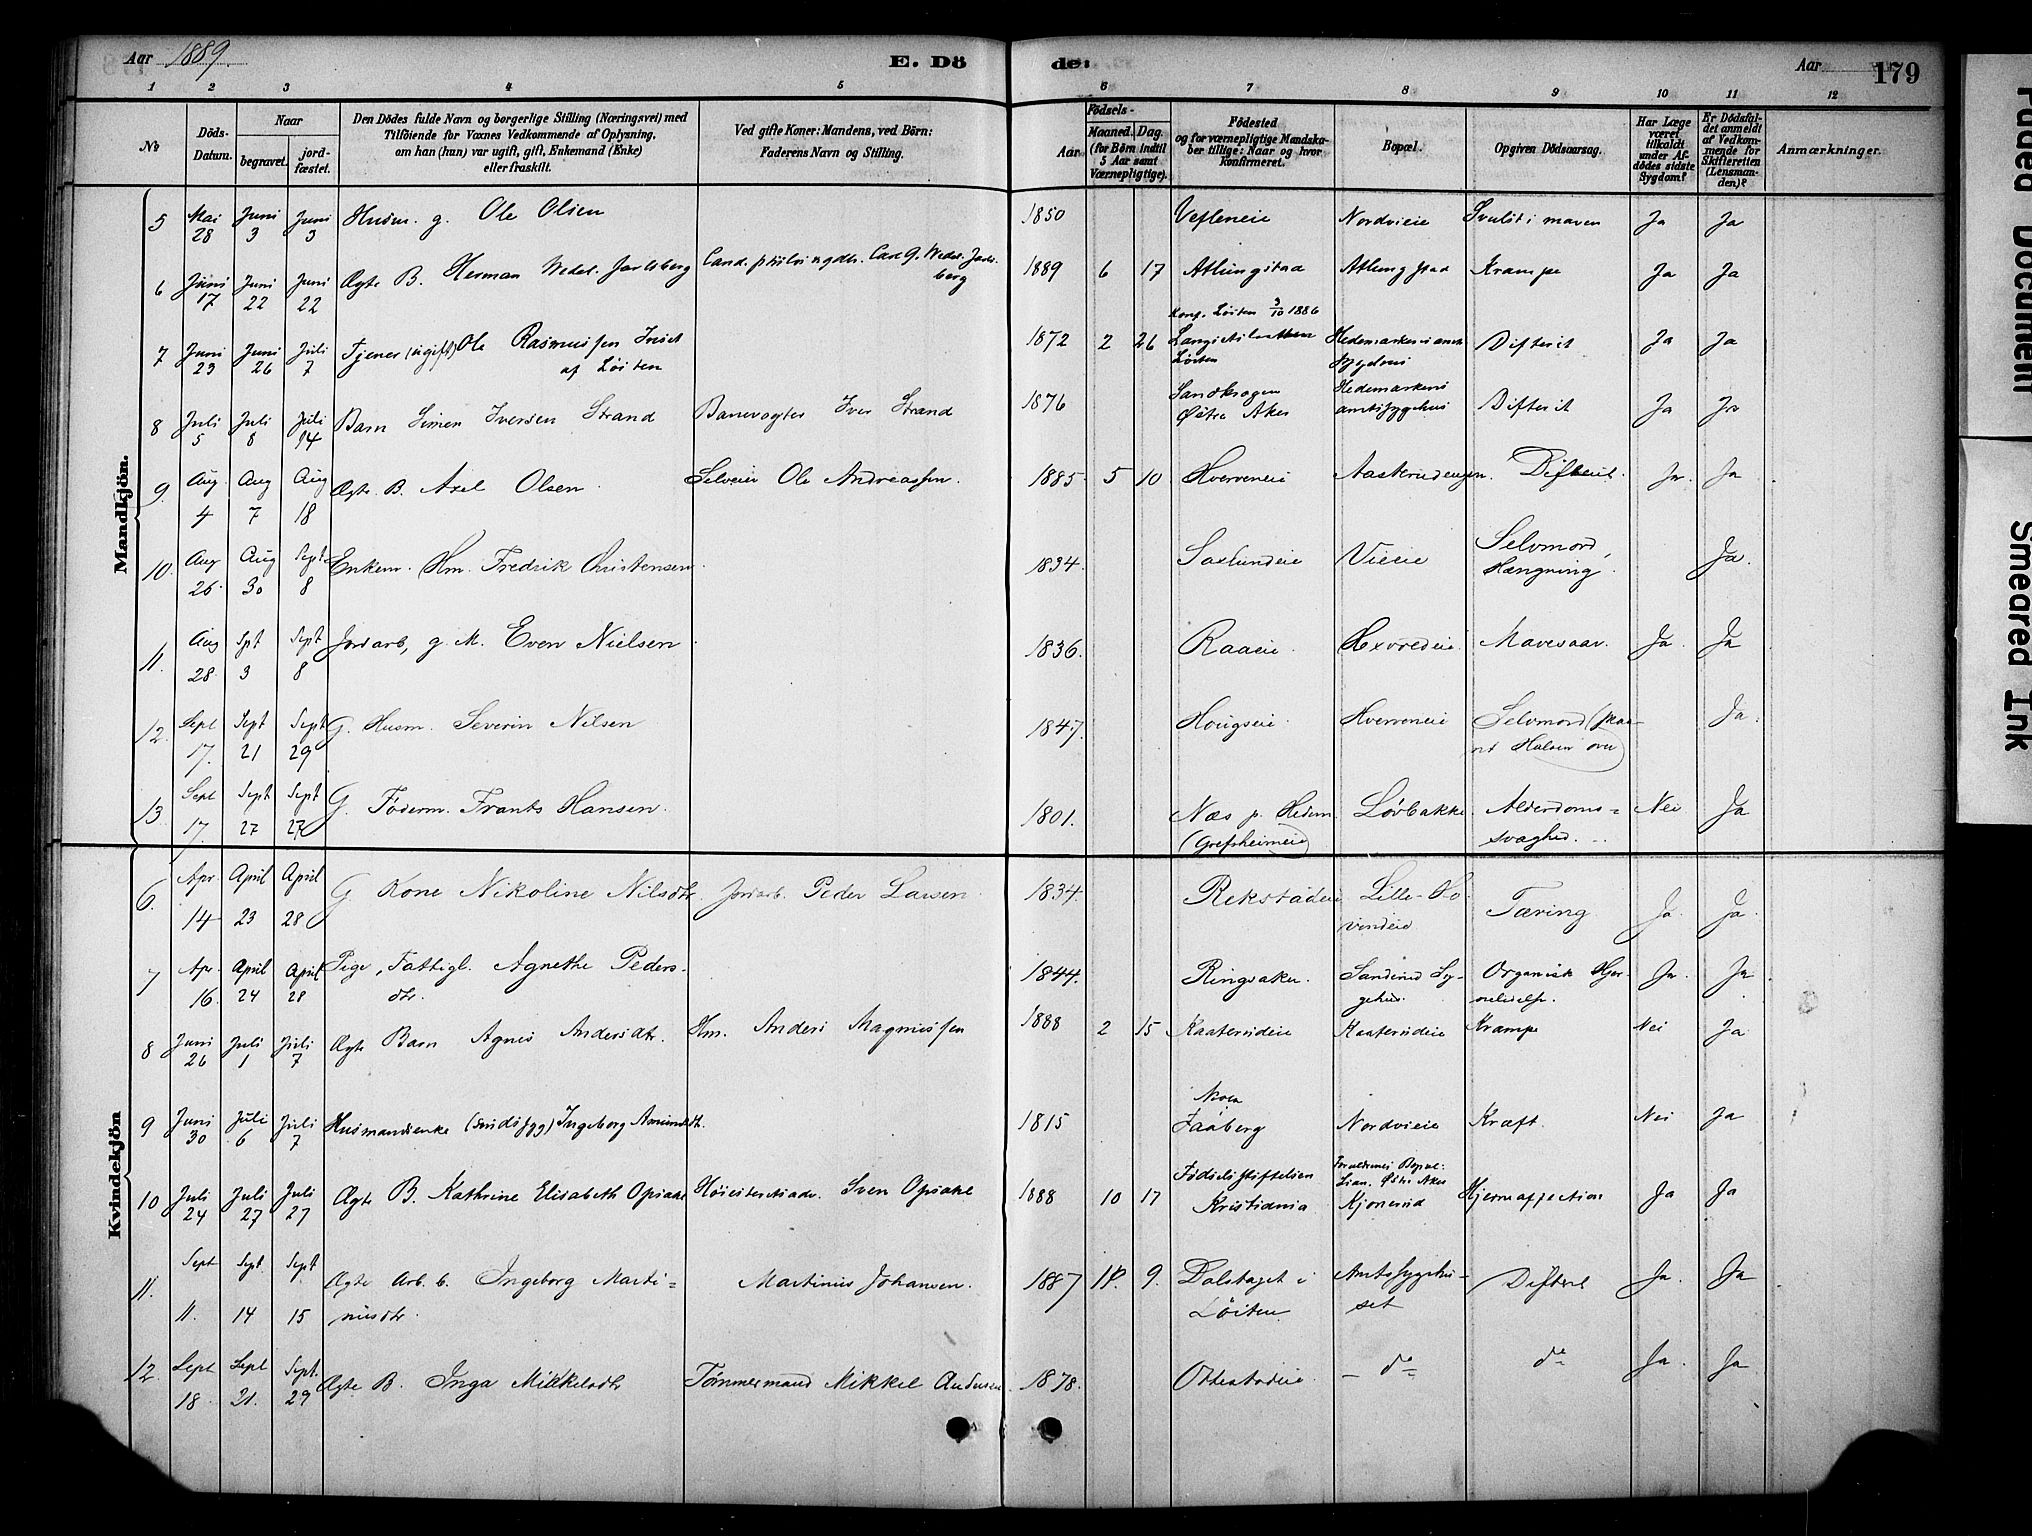 Aar 1889.
E. Dö
de:
Aar
179
1 2 3 4 5 6 7 8 9 10 11 12
No
Döds-Datum.
Naar
begravet.
jord-fæstet.
Den Dödes fulde Navn og borgerlige Stilling (Næringsvei) med
Tilföiende for Voxnes Vedkommende af Oplysning,
om han (hun) var ugift, gift, Enkemand (Enke)
eller fraskilt.
Ved gifte Koner: Mandens, ved Börn:
Faderens Navn og Stilling.
Födsels-
Aar
Maaned. Dag.
(for Börn indtil
5 Aar samt
Værnepligtige).
Födested
og for værnepligtige Mandska-
ber tillige: Naar og hvor
Konfirmeret.
Bopæl.
Opgiven Dödsaarsag.
Har Læge
været
tilkaldt
under Af-
dödes sidste
Sygdom?
Er Dödsfal-
det anmeldt
af Vedkom-
mende for
Skifteretten
(Lensman-
den)?
Anmærkninger.
Mandkjön.
5 Mai 28 Juni 3 Juni 3 Husm. g. Ole Olsen 1850 Nordvieie Svulst i maven Ja Ja
6 Juni 17 Juni 22 Juni 22 Ægte B. Herman Wedel. Jarlsberg Carl G. Wedel. Jarlsberg 1889 6 17 Atlungstad Atlungstad Krampe Ja Ja
7 Juni 23 Juni 26 Juli 7 Tjener (ugift) Ole Rasmussen af Löiten 1872 2 26 Konf. Löiten 3/10 1886 Löiten Hedemarkens amts Sygehus Difterit Ja Ja
8 Juli 5 Juli 8 Juli 14 Barn Simen Iversen Strand Banevogter Iver Strand 1876 Østre Aker Hedemarkens amtssygehus Difterit Ja Ja
9. Aug. 4 Aug 7 Aug 18 Ægte B. Axel Olsen Selveier Ole Andreassen. 1885 5 10 Hverveneie Aasterudengen. Difterit. Ja. Ja
10. Aug 26. Aug 30 Sept 8 Enkem. Hm. Fredrik Christensen 1834. Saxlundeie Vieie Selvmord, Hængning. Ja.
11. Aug 28. Spt 3 Sept 8 Jordarb, g. M. Even Nielsen 1836. Raaeie. Mavesaar. Ja. Ja
12. Sept 17. Sept 21 Sept 29 G. Husm. Severin Nilsen 1847. Hougseie. Hverveneie Selvmord (skaaret Halsen over) Ja.
13. Sept 17. Sept 27 Sept 27 G. Føderm. Frants Hansen. 1801. Næs p. Hedem. (Grefsheimeie) Løvbakke Alderdomssvaghed. Nei Ja
Kvindekjön
6. Apr. 14 April 23 April 28 G Kone Nikoline Nilsdtr. Jordarb. Peder Larsen 1834. Rekstadeie Lille-Hovindeie Tæring Ja. Ja.
7 Apr. 16. April 24 April 28 Pige, Fattigl. Agnethe Pedersdtr. 1844. Ringsaker. Sanderud Sygehus. Organisk Hjertelidelse. Ja. Ja
8 Juni 26 Juli 1 Juli 7 Ægte Barn Agnes Andersdtr. Hm. Anders Magnussen 1888 2 15 Kaaterudeie Kaaterudeie Krampe Nei Ja
9 Juni 30 Juli 6 Juli 7 Husmandsenke (sindssyg) Ingeborg Amundsdtr. 1815 Faaberg Nordvieie Kræft. Nei Ja
10 Juli 24 Juli 27 Juli 27 Ægte B. Kathrine Elisabeth Opsahl Höiesteretsadv. Sven Opsahl 1888 10 17 Födselsstiftelsen Kristiania Forældrenes Bopæl: Lian, Østre Aker Kjonerud Hjerneaffection Ja Ja
11. Sept 11. Sept. 14 Sept 15 Ægte Arb. b. Ingeborg Martinusdtr. Martinus Johansen. 1887 9. Dalstaget i Løiten Amtssygehuset Difterit Ja. Ja
12. Sept 18 Sept 21. Sept. 29 Ægte B. Inga Mikkelsdtr Tömmermand Mikkel Andersen 1878. Ottestadeie. – do do Ja. Ja
Faded Document
Smeared Ink